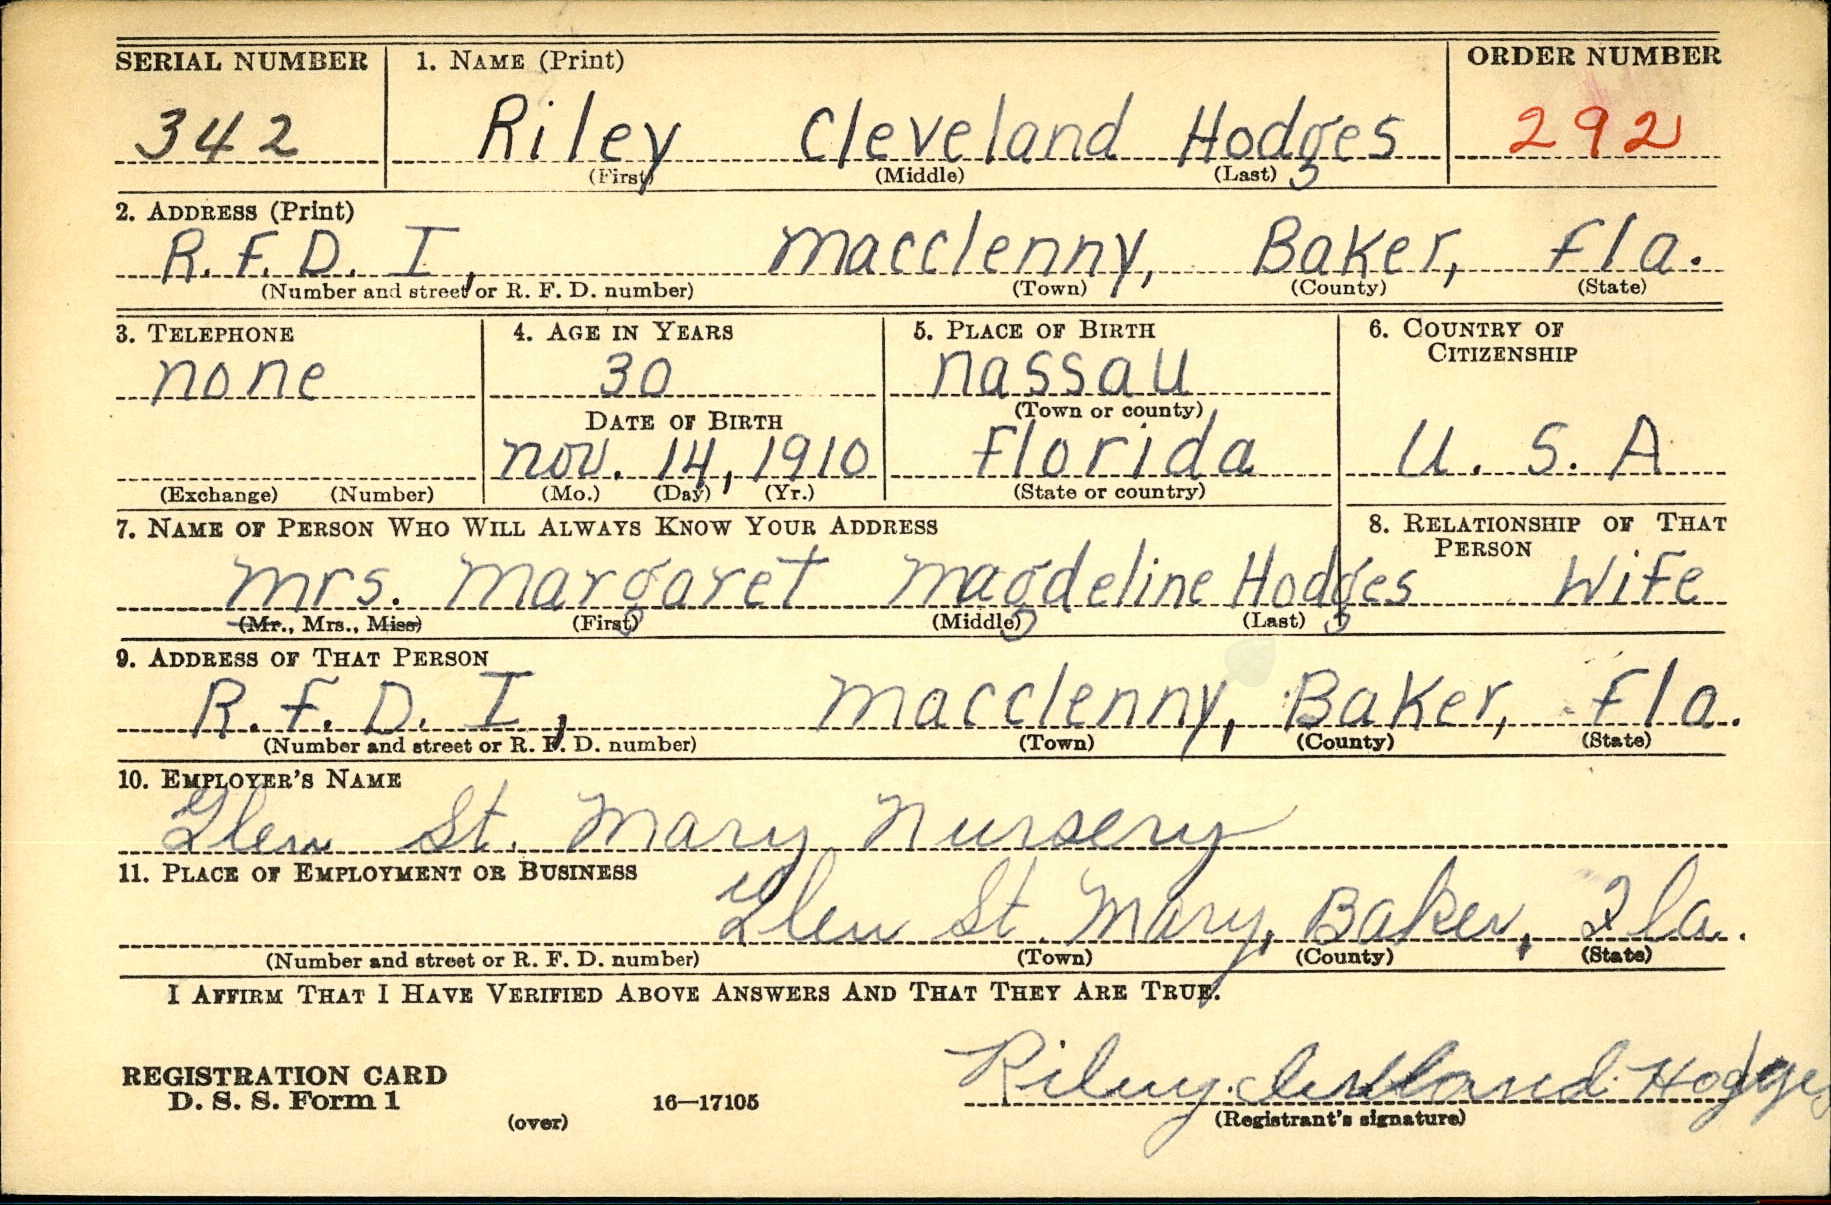 SERIAL NUMBER 1. NAME (Print) ORDER NUMBER
342 Riley Cleveland Hodges 292
(First) (Middle) (Last)
2. ADDRESS (Print)
R. F. D. I, Macclenny, Baker, Fla.
(Number and street or R. F. D. number) (Town) (County) (State)
3. TELEPHONE 4. AGE IN YEARS 5. PLACE OF BIRTH 6. COUNTRY OF
CITIZENSHIP
none 30 Nassau
DATE OF BIRTH (Town or county)
Nov. 14, 1910 Florida U. S. A
(Exchange) (Number) (Mo.) (Day) (Yr.) (State or country)
7. NAME OF PERSON WHO WILL ALWAYS KNOW YOUR ADDRESS 8. RELATIONSHIP OF THAT
PERSON
Mrs. Margaret Magdeline Hodges Wife
(Mr., Mrs., Miss) (First) (Middle) (Last)
9. ADDRESS OF THAT PERSON
R. F. D. I, Macclenny, Baker, Fla.
(Number and street or R. F. D. number) (Town) (County) (State)
10. EMPLOYER'S NAME
Glen St. Mary Nursery
11. PLACE OF EMPLOYMENT OR BUSINESS
Glen St. Mary, Baker, Fla.
(Number and street or R. F. D. number) (Town) (County) (State)
I AFFIRM THAT I HAVE VERIFIED ABOVE ANSWERS AND THAT THEY ARE TRUE.
Riley Cleveland Hodges
REGISTRATION CARD
D. S. S. Form 1 16—17105
(over) (Registrant's signature)